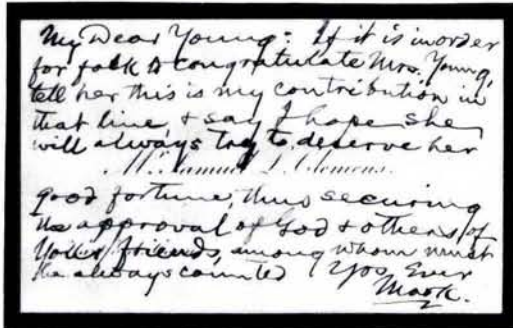 My Dear Young: If it is in order
for folk to congratulate Mrs. Young,
tell her this is my contribution in
that line, & say I hope she
will always try to deserve her
Mr. Samuel L. Clemens.
good fortune, thus securing
the approval of God & others of
Your friends, among whom must
be always counted Yos Ever
Mark.